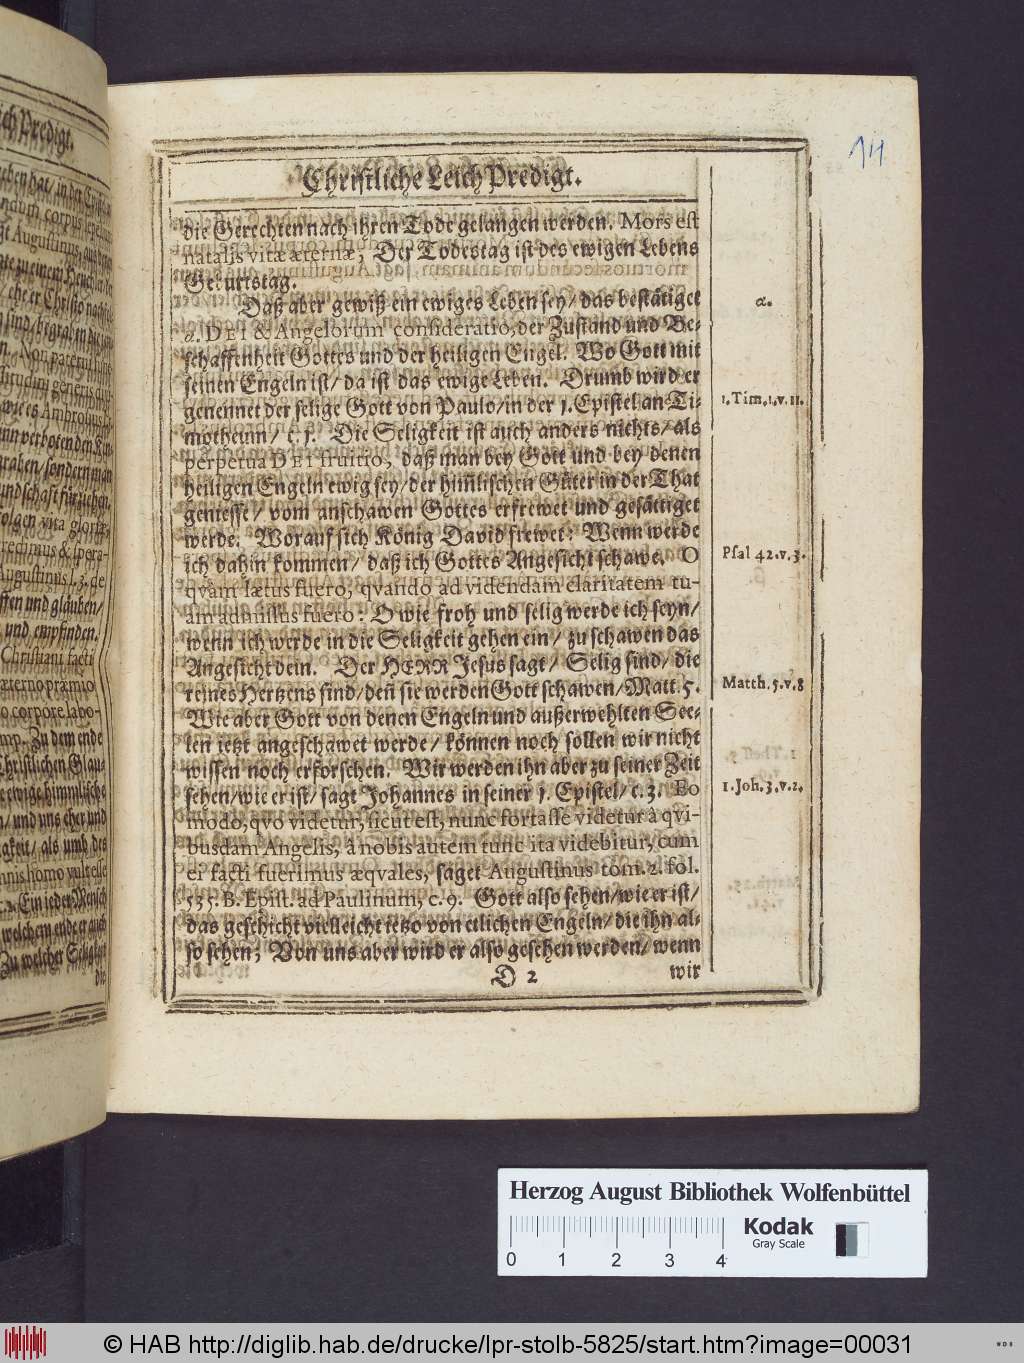 ich Predigt.
14
Christliche Leich Predigt.
die Gerechten nach ihren Tode gelangen werden. Mors est
natalis vitæ æternæ, Der Todestag ist des ewigen Lebens
Geburtstag.
Daß aber gewiß ein ewiges Leben sey/ das bestätiget
α.
α. DEI & Angelorum consideratio, der Zustand und Be-
schaffenheit Gottes und der heiligen Engel. Wo Gott mit
seinen Engeln ist/ da ist das ewige Leben. Drumb wird er
genennet der selige Gott von Paulo/ in der 1. Epistel an Ti-
1. Tim. 1. v. 11.
motheum/ c. 1. Die Seligkeit ist auch anders nichts/ als
perpetua DEI fruitio, daß man bey Gott und bey denen
heiligen Engeln ewig sey/ der him̃lischen Güter in der That
geniesse/ vom anschawen Gottes erfrewet und gesättiget
werde. Worauf sich König David frewet: Wenn werde
ich dahin kommen/ daß ich Gottes Angesicht schawe. O
Psal 42. v. 3.
qvam lætus fuero, qvando ad videndam claritatem tu-
am admissus fuero: O wie froh und selig werde ich seyn/
wenn ich werde in die Seligkeit gehen ein/ zu schawen das
Angesicht dein. Der HERR Jesus sagt/ Selig sind/ die
reines Hertzens sind/ deñ sie werden Gott schawen/ Matt. 5.
Matth. 5. v. 8
Wie aber Gott von denen Engeln und außerwehlten See-
len jetzt angeschawet werde/ können noch sollen wir nicht
wissen noch erforschen. Wir werden ihn aber zu seiner Zeit
sehen/ wie er ist/ sagt Johannes in seiner 1. Epistel/ c. 3. Eo
1. Joh. 3. v. 2.
modo, qvo videtur, sicut est, nunc fortasse videtur à qvi-
busdam Angelis, à nobis autem tunc ita videbitur, cum
ei facti fuerimus æqvales, saget Augustinus tom. 2. fol.
535. B. Epist. ad Paulinum, c. 9. Gott also sehen/ wie er ist/
das geschicht vielleicht jetzo von etlichen Engeln/ die ihn al-
so sehen; Von uns aber wird er also gesehen werden/ wenn
D 2
wir
Herzog August Bibliothek Wolfenbüttel
Kodak
Gray Scale
0 1 2 3 4
© HAB http://diglib.hab.de/drucke/lpr-stolb-5825/start.htm?image=00031